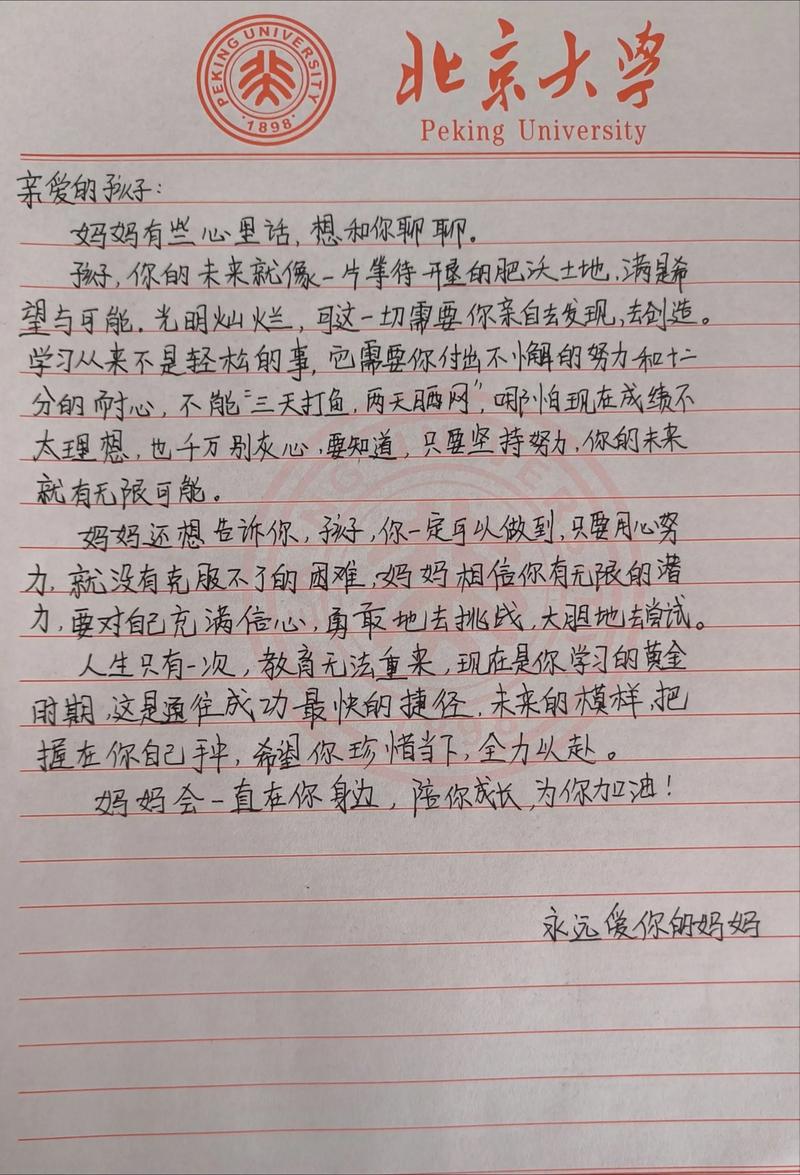 PEKING UNIVERSITY
1898
北京大学
Peking University
亲爱的孩子：
妈妈有些心里话，想和你聊聊。
孩子，你的未来就像一片等待开垦的肥沃土地，满是希
望与可能，光明灿烂，可这一切需要你亲自去发现，去创造。
学习从来不是轻松的事，它需要你付出不懈的努力和十二
分的耐心，不能“三天打鱼，两天晒网”，哪怕现在成绩不
太理想，也千万别灰心，要知道，只要坚持努力，你的未来
就有无限可能。
妈妈还想告诉你，孩子，你一定可以做到，只要用心努
力，就没有克服不了的困难，妈妈相信你有无限的潜
力，要对自己充满信心，勇敢地去挑战，大胆地去尝试。
人生只有一次，教育无法重来，现在是你学习的黄金
时期，这是通往成功最快的捷径，未来的模样，把
握在你自己手中，希望你珍惜当下，全力以赴。
妈妈会一直在你身边，陪你成长，为你加油！
永远爱你的妈妈